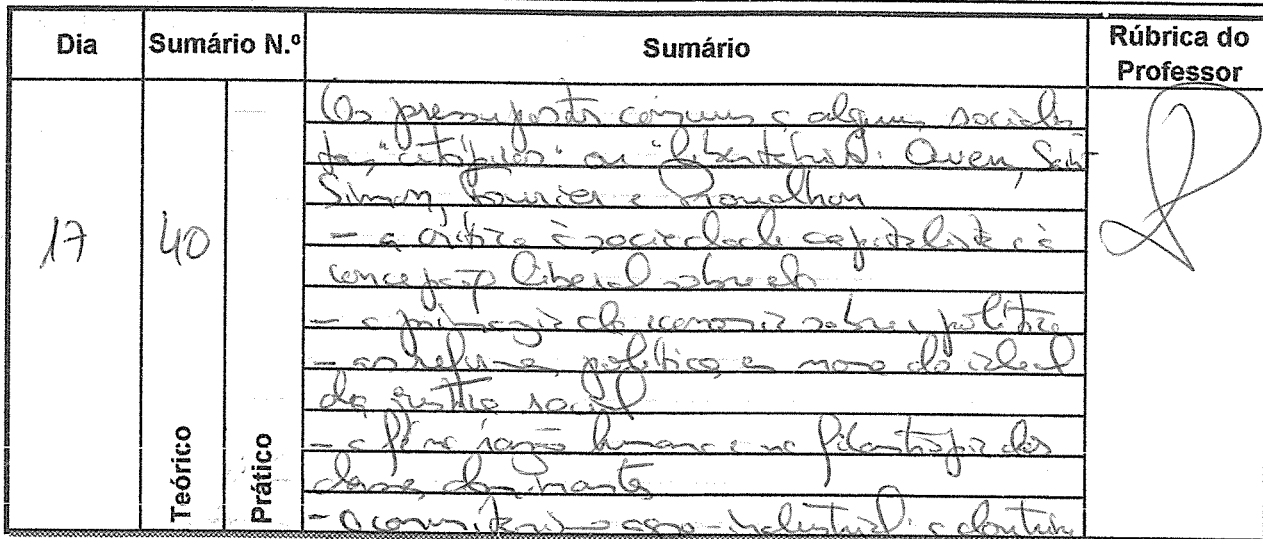 Dia Sumário N.º Sumário Rúbrica do Professor
17 40
Teórico Prático
Os pressupostos comuns a alguns socialis
tas "utópicos" ou "libertários": Owen, Saint
Simon, Fourier e Proudhon
- a crítica à sociedade capitalista e à
concepção liberal sobre ela
- a primazia da economia sobre a política
- as reformas políticas em nome do ideal
da justiça social
- a fé na razão humana e na filantropia das
classes dominantes
- O comunitarismo agro-industrial: a doutrina